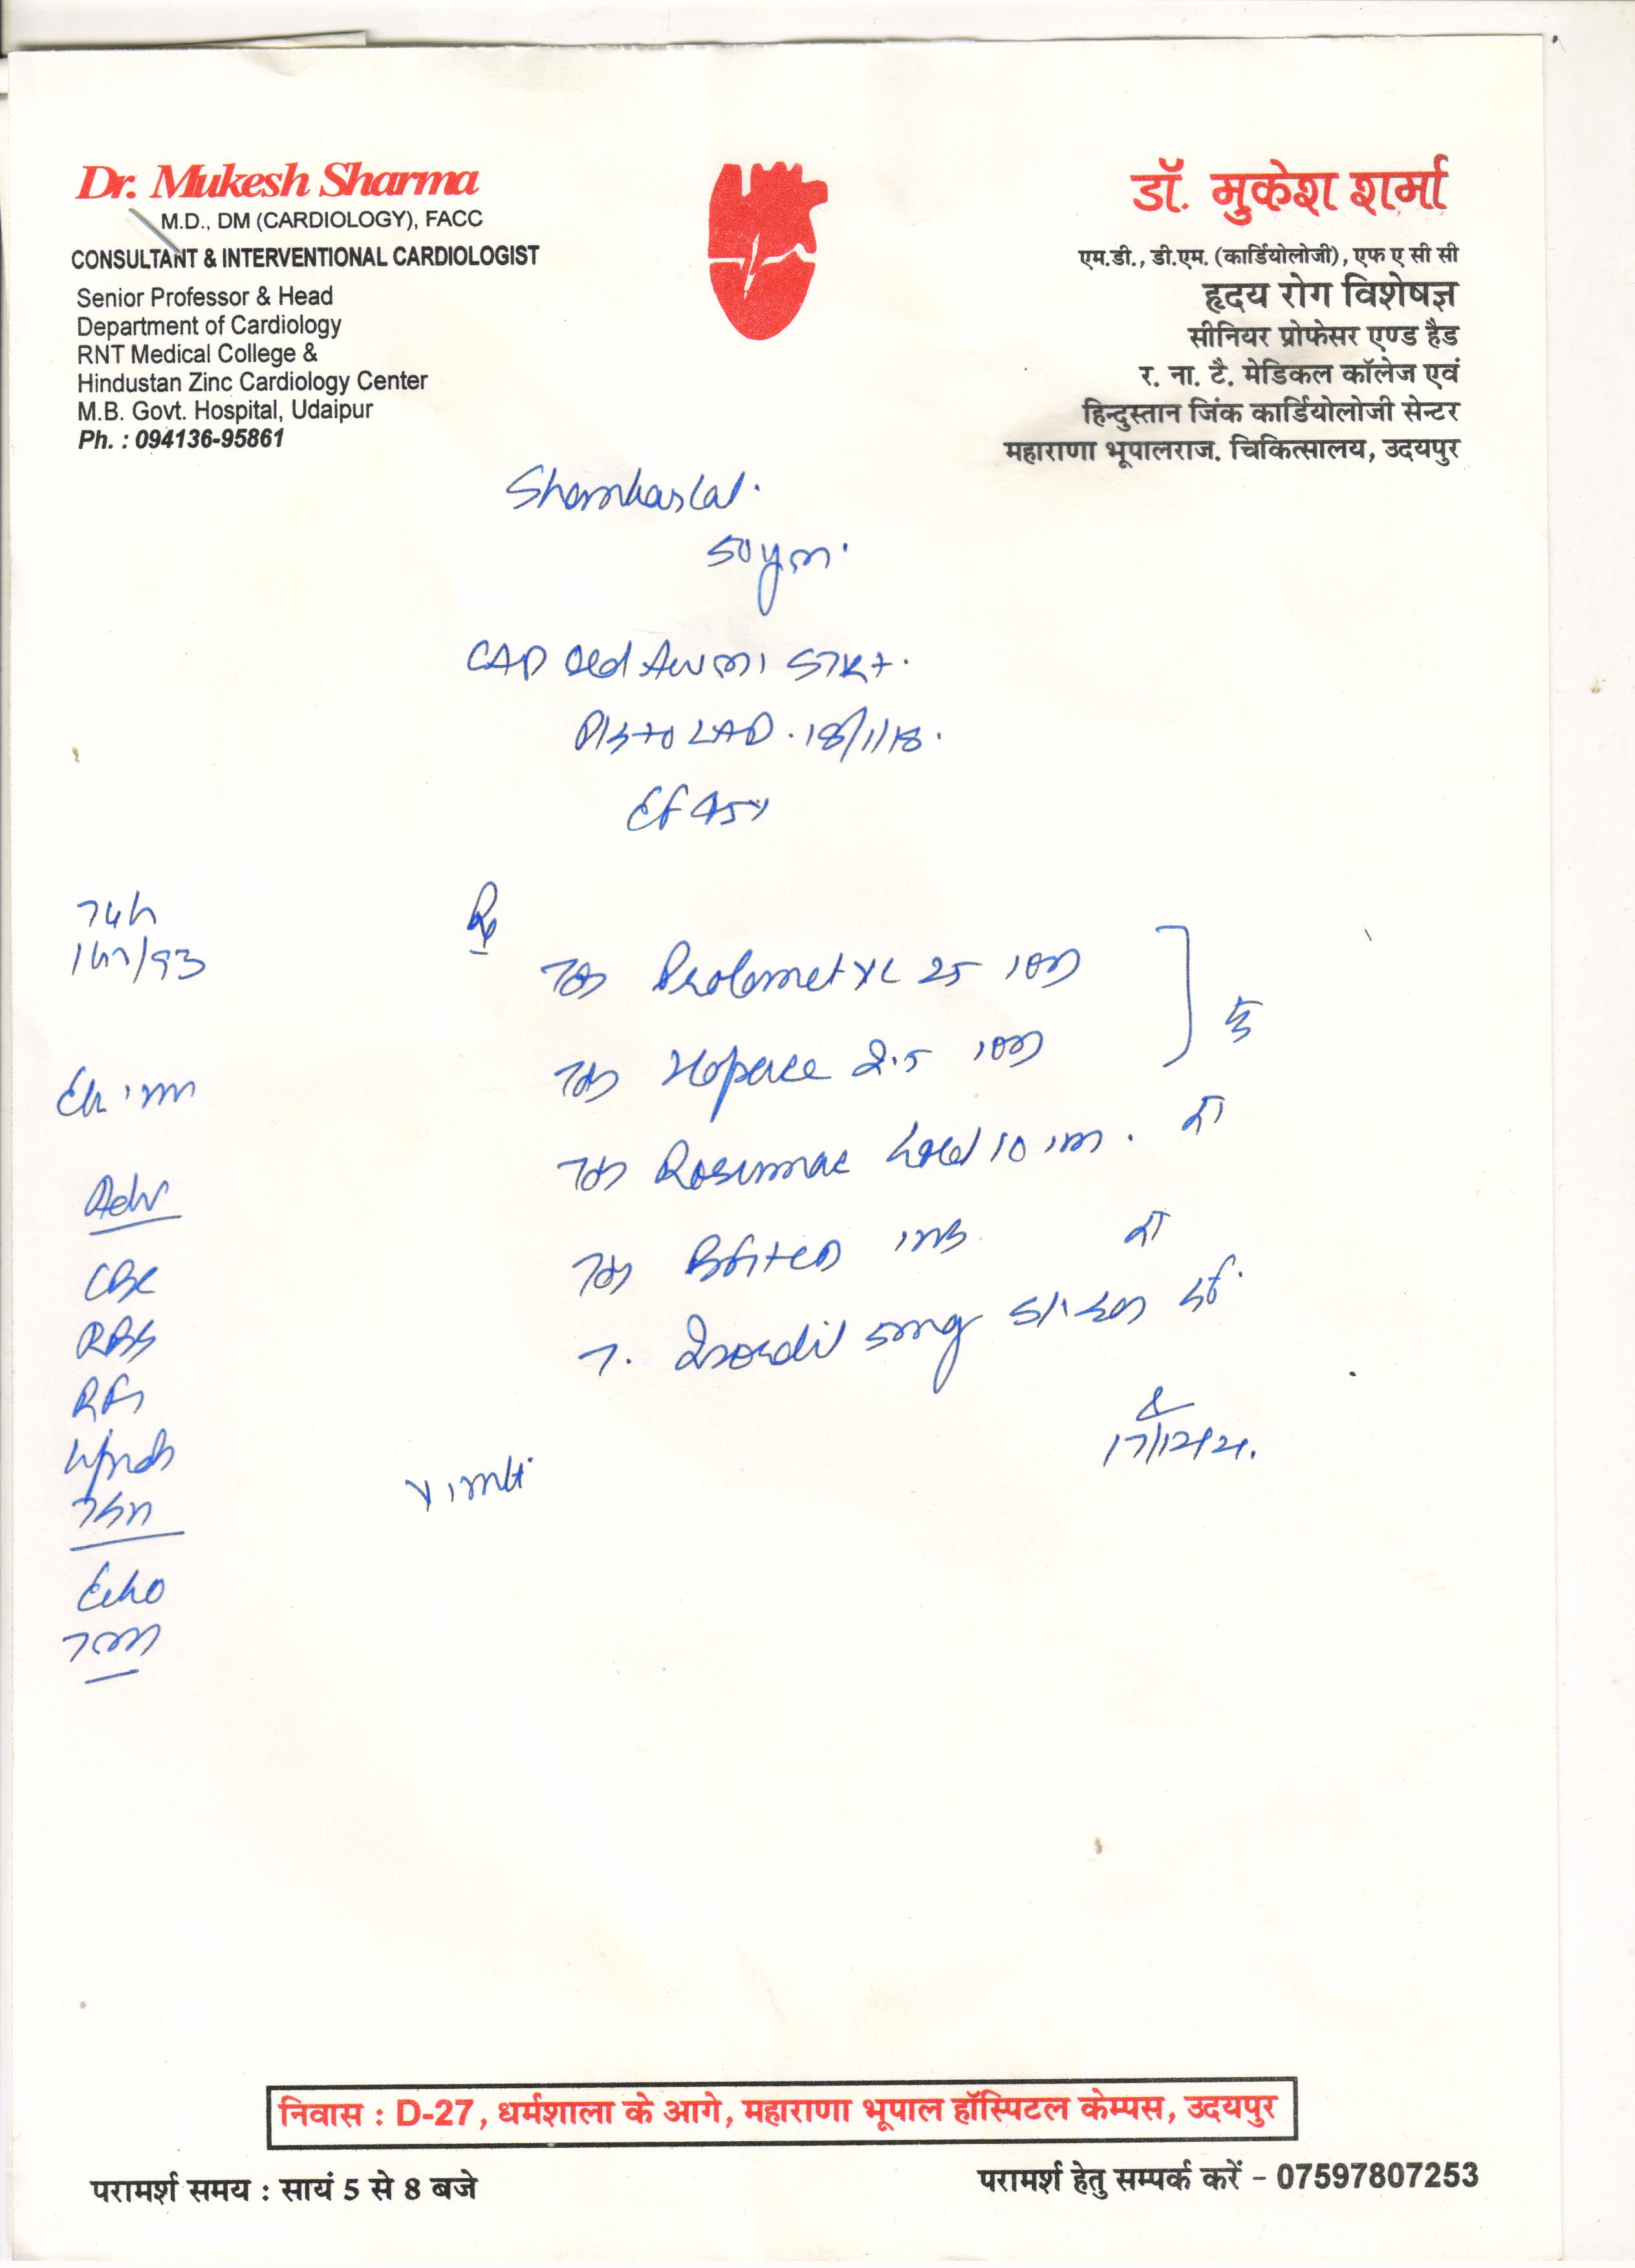 Dr. Mukesh Sharma
M.D., DM (CARDIOLOGY), FACC
CONSULTANT & INTERVENTIONAL CARDIOLOGIST
Senior Professor & Head
Department of Cardiology
RNT Medical College &
Hindustan Zinc Cardiology Center
M.B. Govt. Hospital, Udaipur
Ph. : 094136-95861
डॉ. मुकेश शर्मा
एम.डी., डी.एम. (कार्डियोलोजी), एफ ए सी सी
हृदय रोग विशेषज्ञ
सीनियर प्रोफेसर एण्ड हैड
र. ना. टै. मेडिकल कॉलेज एवं
हिन्दुस्तान जिंक कार्डियोलोजी सेन्टर
महाराणा भूपालराज. चिकित्सालय, उदयपुर
Shankarlal.
50ym.
CAD Old AWMI STK+.
P/S to LAD. 18/1/18.
EF 45%
Rx
Prolomet XL 25
Hopace 2.5
Rosumac Gold 10
T. Isordil 5mg S/L SOS
17/12/21.
Adv
CBC
RBS
RFT
Lipids
TSH
Echo
TMT
निवास : D-27, धर्मशाला के आगे, महाराणा भूपाल हॉस्पिटल केम्पस, उदयपुर
परामर्श समय : सायं 5 से 8 बजे
परामर्श हेतु सम्पर्क करें - 07597807253